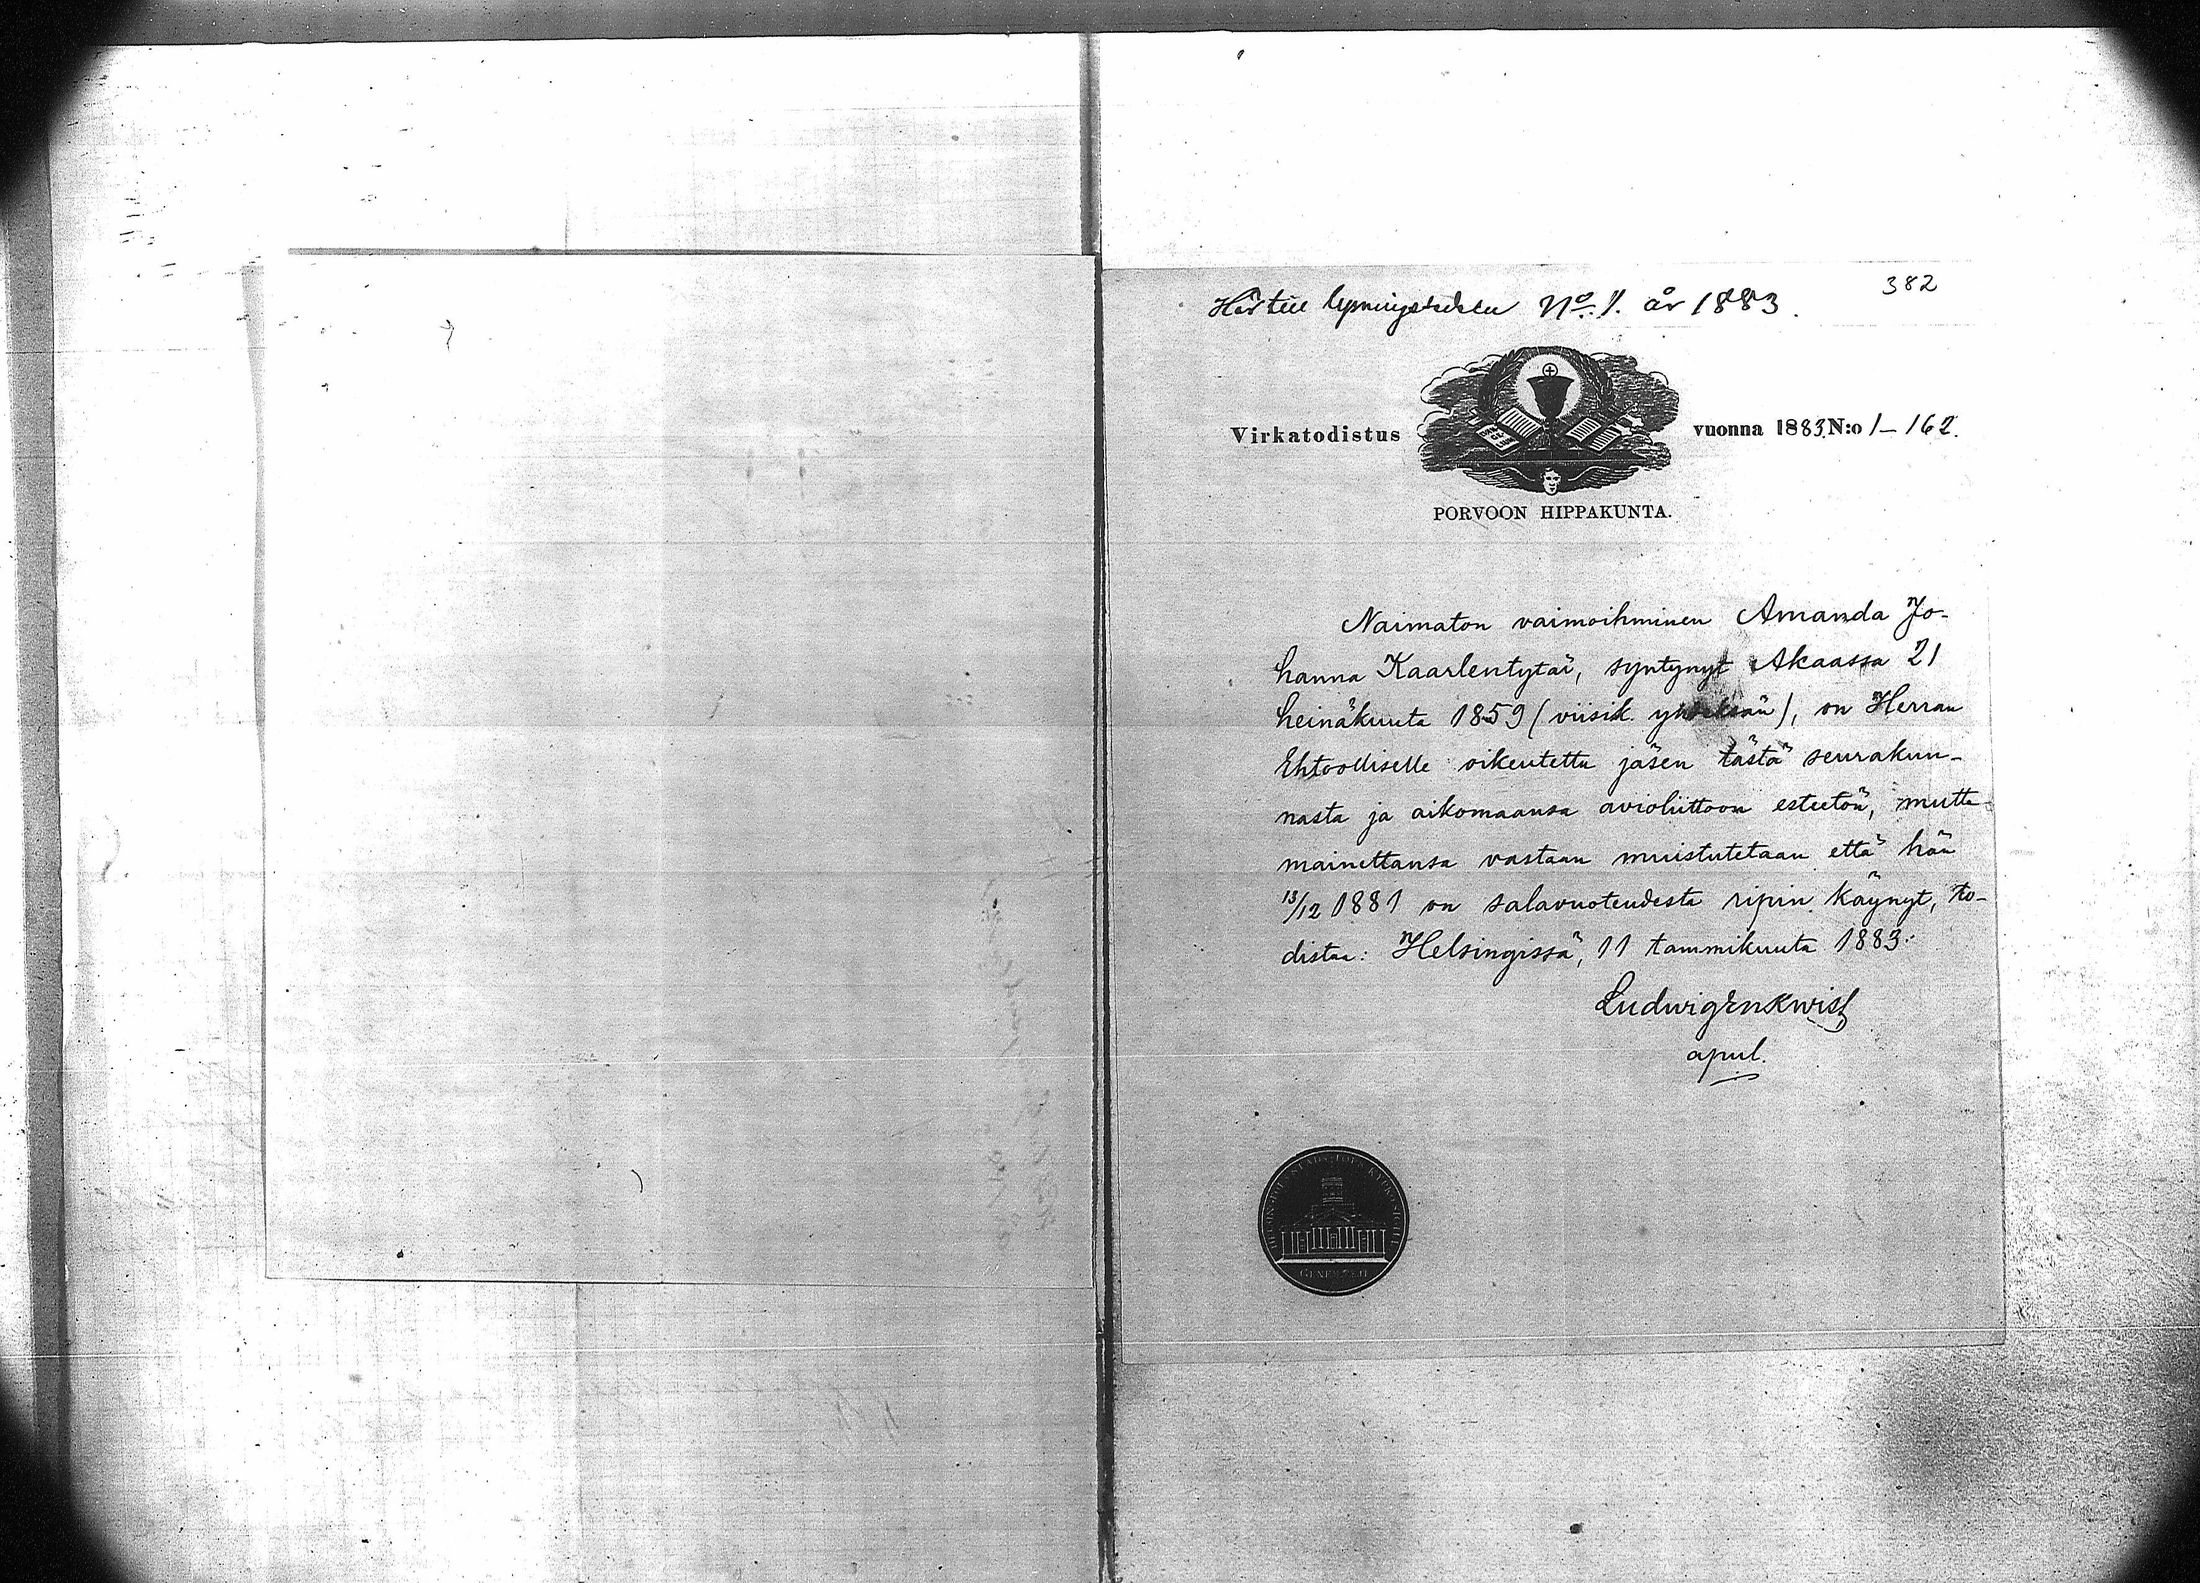 382
Hör till lysningsedeln No. 1. år 1883.
Virkatodistus vuonna 1883. N:o 1–162.
PORVOON HIPPAKUNTA.
Naimaton vaimoihminen Amanda Jo-
hanna Kaarlentytär, syntynyt Akaassa 21
heinäkuuta 1859 (viisik. yhdeksän), on Herran
Ehtoolliselle oikeutettu jäsen tästä seurakun-
nasta ja aikomaansa avioliittoon esteetön, mutta
mainettansa vastaan muistutetaan että hän
13/12 1881 on salavuoteudesta ripin käynyt, to-
distaa: Helsingissä, 11 tammikuuta 1883.
Ludvig Enkwist
apul.